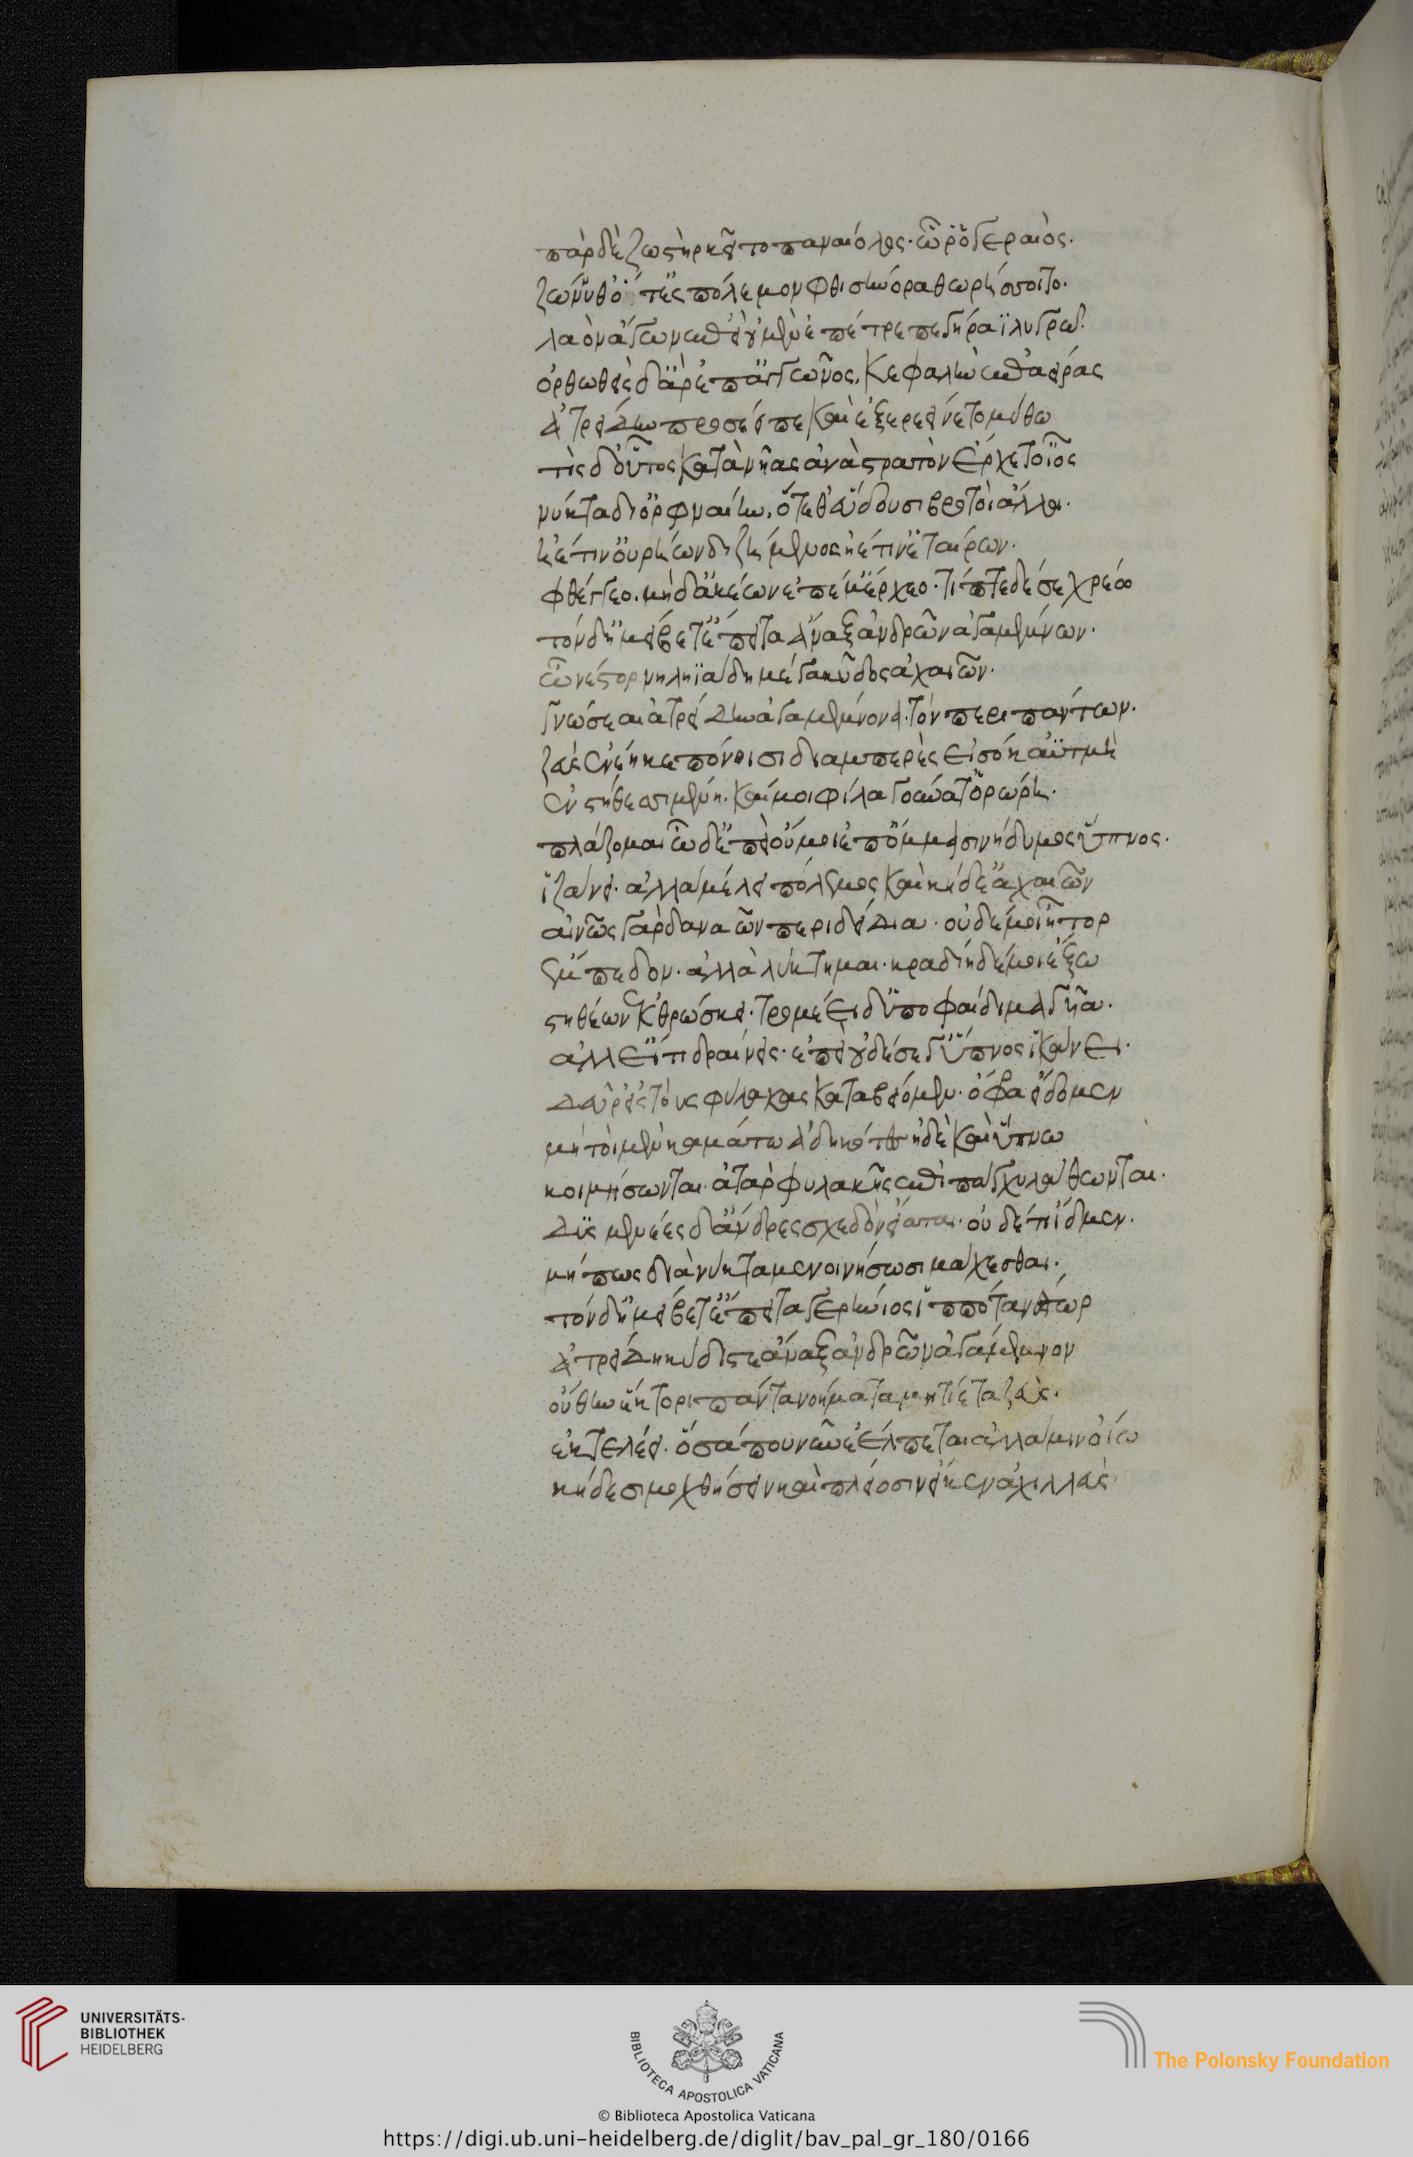 πὰρ δὲ ζωστὴρ κεῖτο παναίολος. ᾧ ῥ' ὁ γεραιὸς.
ζώννυθ' ὅτ' ἐς πόλεμον φθισήνορα θωρήσσοιτο.
λαὸν ἄγων ἐπεὶ οὐ μὲν ἐπέτρεπε γήραϊ λυγρῶ.
ὀρθωθεὶς δ' ἄρ' ἐπ' ἀγκῶνος, κεφαλὴν ἐπαείρας
ἀτρείδην προσέειπε καὶ ἐξερεείνετο μύθω
τίς δ' οὗτος κατὰ νῆας ἀνὰ στρατὸν ἔρχεαι οἶος
νύκτα δι' ὀρφναίην, ὅτε θ' εὕδουσι βροτοὶ ἄλλοι.
ἠέ τιν' οὐρήων διζήμενος ἠέ τιν' ἑταίρων.
φθέγγεο. μὴ δ' ἀκέων ἐπ' ἔμ' ἔρχεο. τίπτε δέ σε χρεώ
τὸν δ' ἠμείβετ' ἔπειτα ἄναξ ἀνδρῶν ἀγαμέμνων.
ὦ νέστορ νηληϊάδη μέγα κῦδος ἀχαιῶν.
γνώσεαι ἀτρείδην ἀγαμέμνονα. τὸν περὶ πάντων.
ζεὺς ἐνέηκε πόνοισι διαμπερὲς εἰσόκ' ἀϋτμὴ
ἐν στήθεσσι μένη. καί μοι φίλα γούνατ' ὀρώρη.
πλάζομαι ὧδ' ἐπεὶ οὔ μοι ἐπ' ὄμμασι νήδυμος ὕπνος.
ἱζάνει. ἀλλὰ μέλει πόλεμος καὶ κήδε' ἀχαιῶν
αἰνῶς γὰρ δαναῶν περιδείδια. οὐδέ μοι ἦτορ
ἔμπεδον. ἀλλ' ἀλύκτημαι. κραδίη δέ μοι ἔξω
στηθέων ἐκθρώσκει. τρομέει δ' ὑπὸ φαίδιμα γυῖα.
ἀλλ' εἴ τι δραίνεις. ἐπεὶ οὐδὲ σέ γ' ὕπνος ἱκάνει.
δεῦρ' ἐς τοὺς φύλακας καταβείομεν. ὄφρα ἴδωμεν
μὴ τοὶ μὲν καμάτω ἀδηκότες ἠδὲ καὶ ὕπνω
κοιμήσωνται. ἀτὰρ φυλακῆς ἐπὶ πάγχυ λάθωνται.
δυσμενέες δ' ἄνδρες σχεδὸν εἵαται. οὐδέ τι ἴδμεν.
μή πως διὰ νύκτα μενοινήσωσι μάχεσθαι.
τὸν δ' ἠμείβετ' ἔπειτα γερήνιος ἱππότα νέστωρ
ἀτρείδη κύδιστε ἄναξ ἀνδρῶν ἀγάμεμνον
οὔ θην ἕκτορι πάντα νοήματα μητίετα ζεὺς.
ἐκτελέει. ὅσα πού νυν ἐέλπεται ἀλλά μιν οἴω
κήδεσι μοχθήσειν καὶ πλείοσιν εἴ κεν ἀχιλλεὺς
UNIVERSITÄTS-
BIBLIOTHEK
HEIDELBERG
BIBLIOTECA APOSTOLICA VATICANA
The Polonsky Foundation
© Biblioteca Apostolica Vaticana
https://digi.ub.uni-heidelberg.de/diglit/bav_pal_gr_180/0166